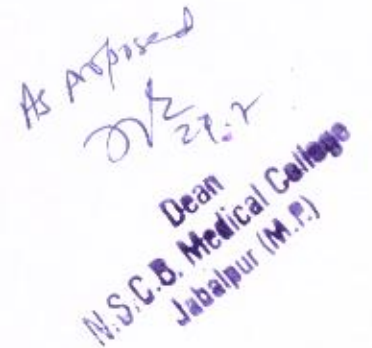 As proposed
29.7
Dean
N.S.C.B. Medical College
Jabalpur (M.P.)